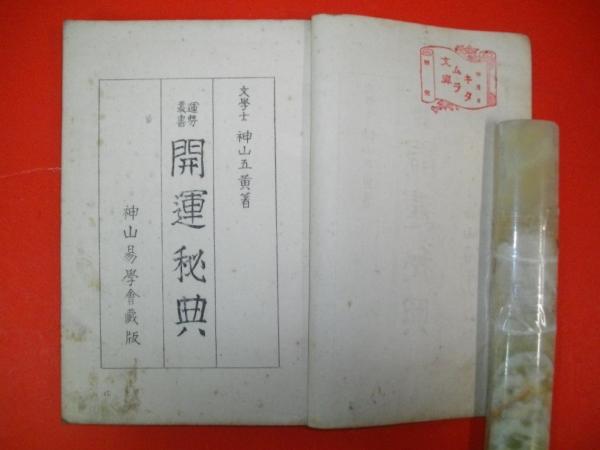 文學士 神山五黄著
運勢
叢書
開運秘典
神山易學會藏版
キタ
ムラ
文庫